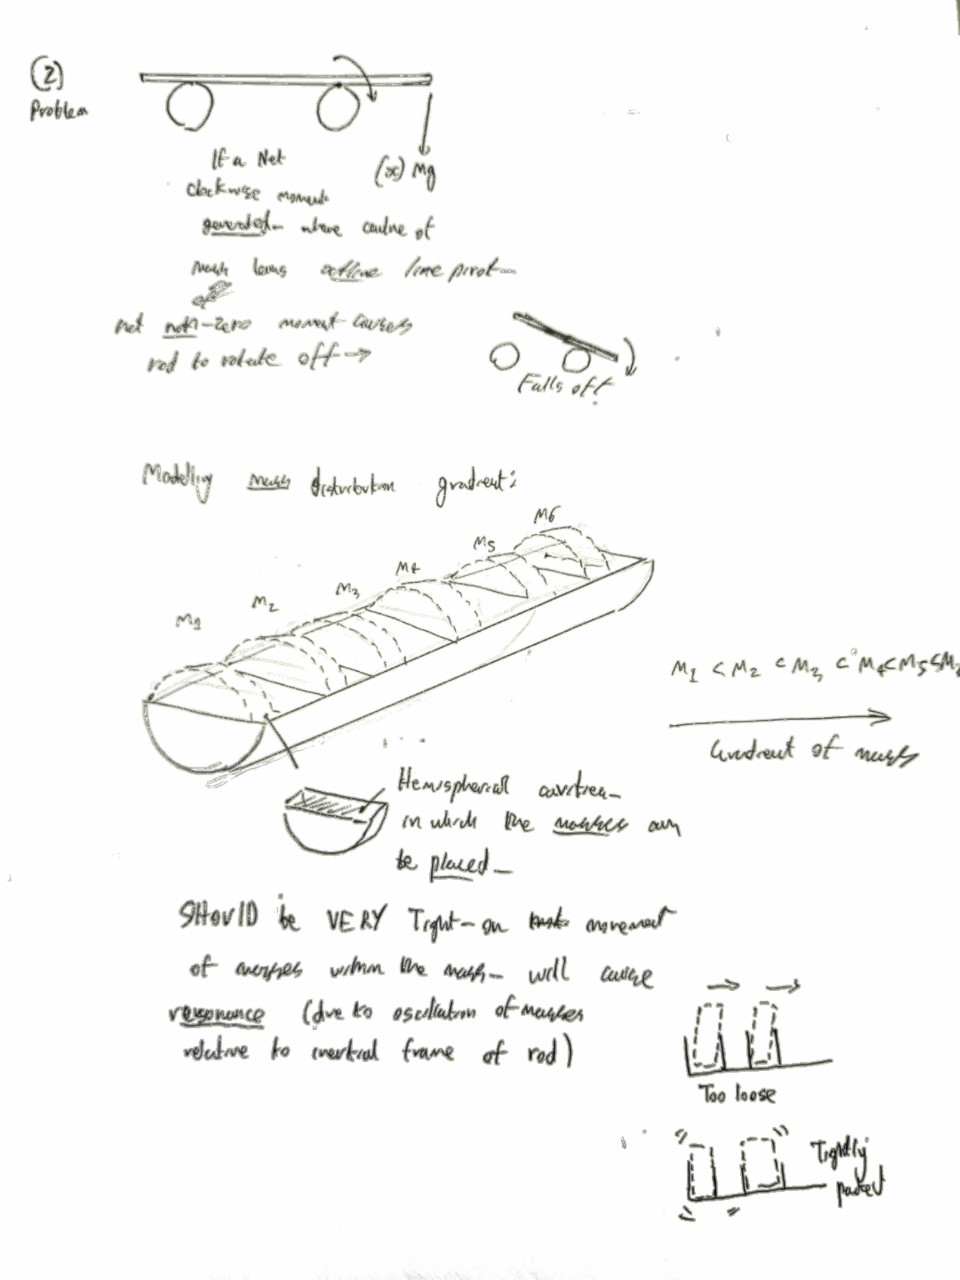 (2)
Problem
If a Net
(x) Mg
clockwise moment
generated - where centre of
mass leans outline line pivot
of
net non-zero moment causes
rod to rotate off →
Falls off
Modelling mass distribution gradient:
M1 M2 M3 M4 M5 M6
M1 < M2 < M3 < M4 < M5 ≤ M6
Gradient of mass
Hemispherical cavities
in which the masses can
be placed
SHOUID be VERY Tight - on movement
of masses within the mass - will cause
resonance (due to oscillation of masses
relative to inertial frame of rod)
Too loose
Tightly
packed